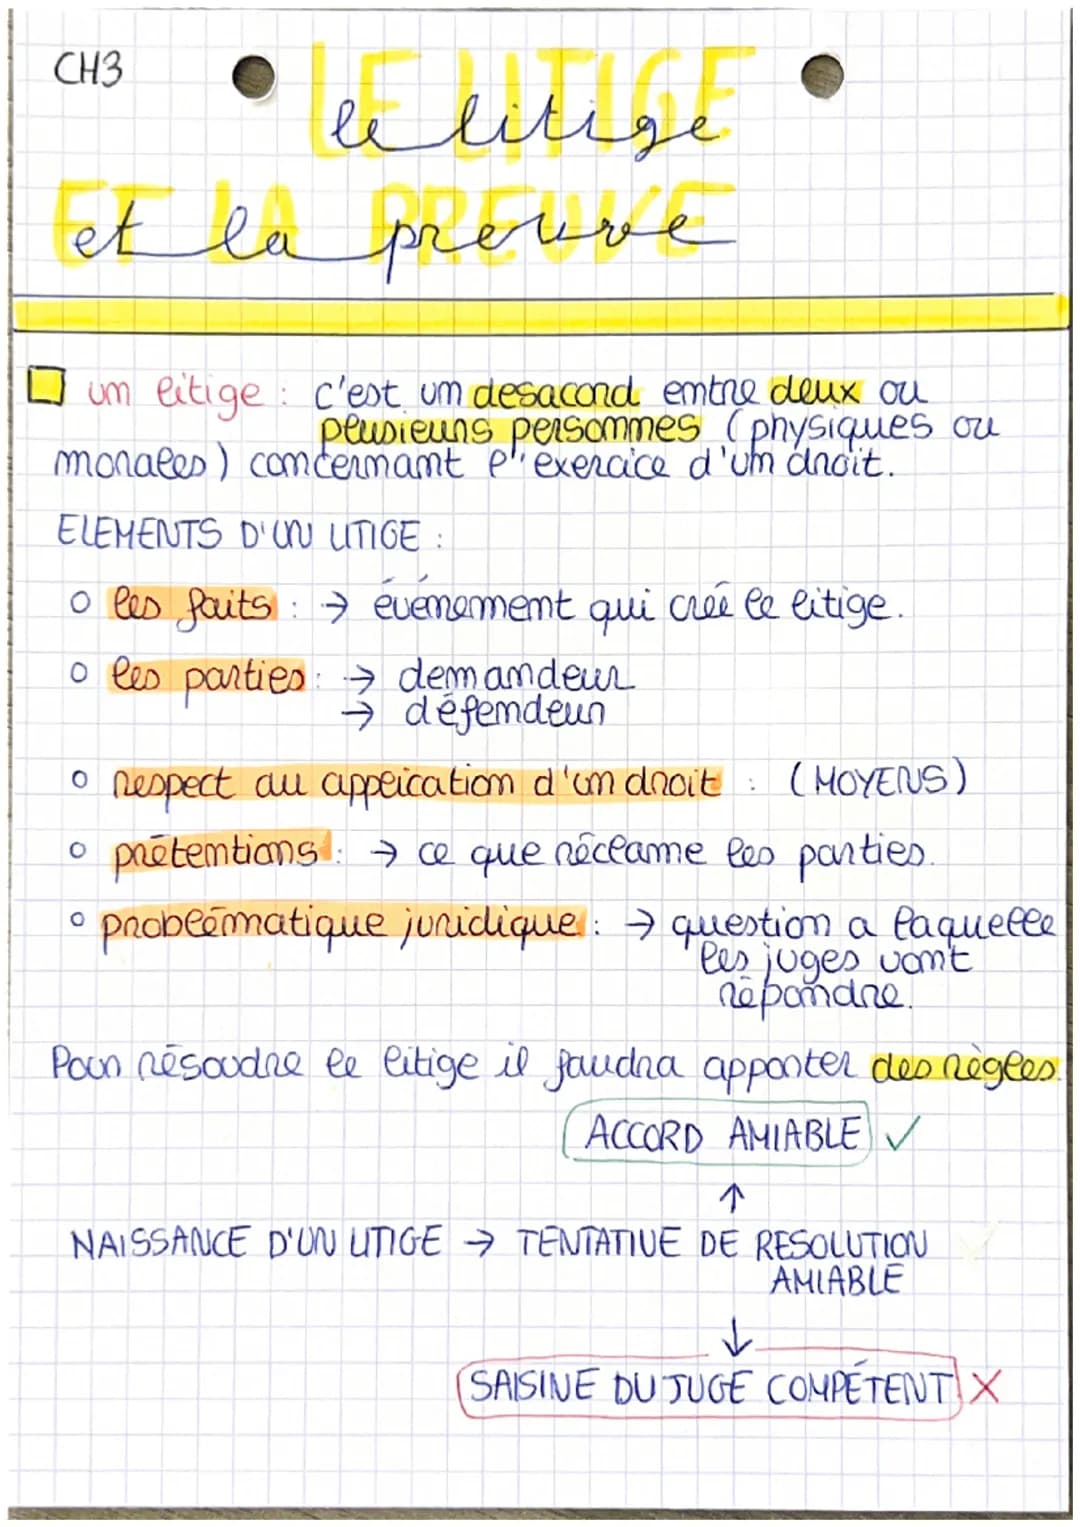 CH3
LE LITIGE
le litige
ET LA PREUVE
et la preuve
un litige : c'est un desacord entre deux ou
plusieurs personnes (physiques ou
morales) concernant l'exercice d'un droit.
ELEMENTS D'UN LITIGE :
o les faits : → événement qui créé le litige.
o les parties : → demandeur
→ défendeur
o respect au application d'un droit : (MOYENS)
o prétentions : → ce que réclame les parties.
o problématique juridique : → question a laquelle
les juges vont
répondre.
Pour résoudre le litige il faudra apporter des règles.
ACCORD AMIABLE ✓
↑
NAISSANCE D'UN LITIGE → TENTATIVE DE RESOLUTION
AMIABLE
↓
SAISINE DU JUGE COMPÉTENT X